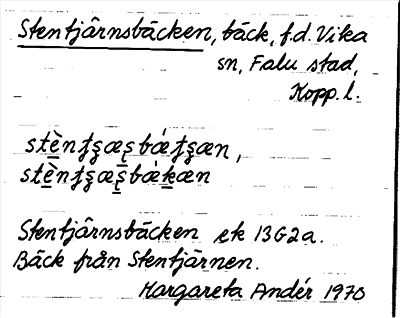 Stentjärnsbäcken, bäck, f.d. Vika
sn, Falu stad,
Kopp. l.
Stentjärnsbäcken ek 13G2a.
Bäck från Stentjärnen.
Margareta Andér 1970